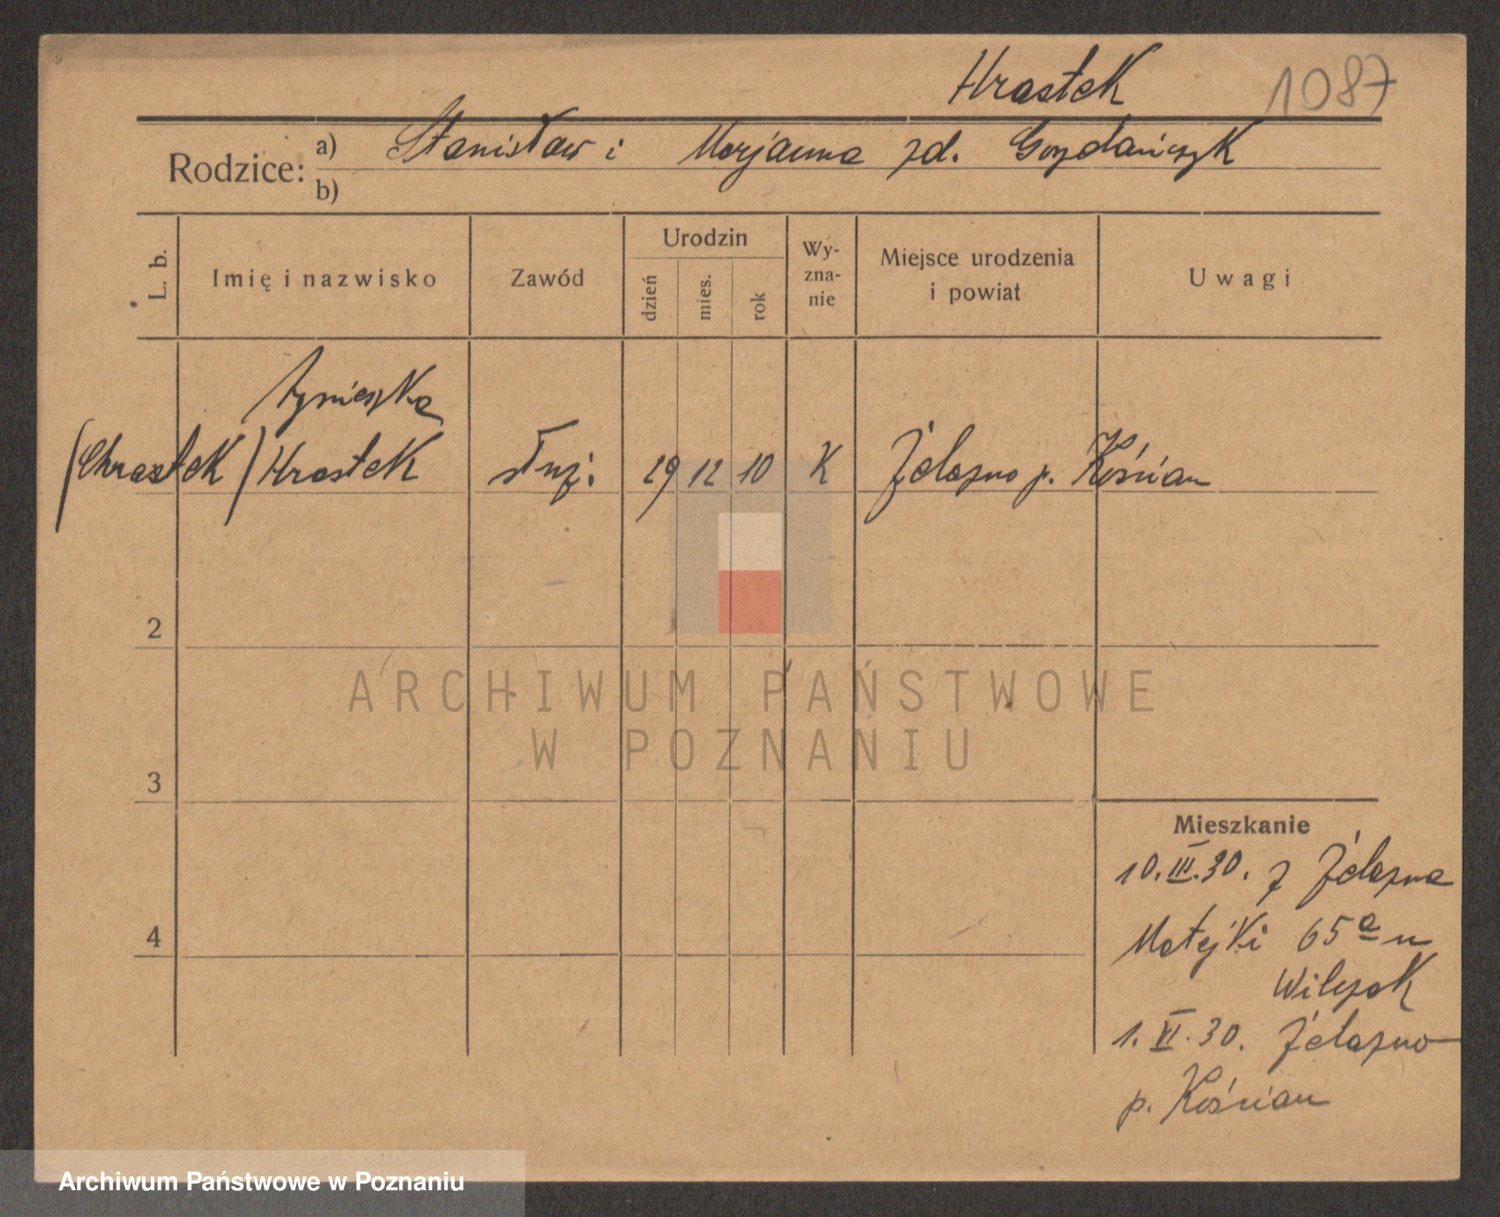 Hrastek 1087
Rodzice: a) Stanisław i Marjanna zd. Gozdańczyk
b)
L. b. Imię i nazwisko Zawód Urodzin dzień mies. rok Wy- zna- nie Miejsce urodzenia i powiat Uwagi
Agnieszka
(Chrastek) Hrastek służ. 29 12 10 K Żelazno p. Kościan
2
ARCHIWUM PAŃSTWOWE
W POZNANIU
3
Mieszkanie
10.III.30. z Żelazna
4
Matejki 65a u
Wilczak
1.VI.30. Żelazno
p. Kościan
Archiwum Państwowe w Poznaniu